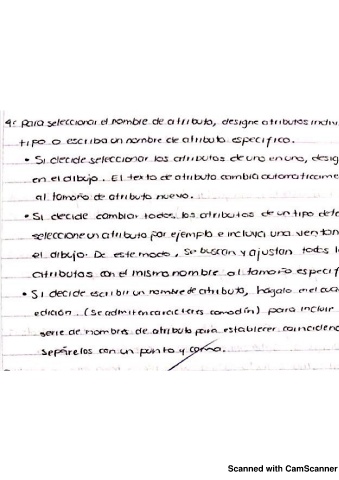 4: Para seleccionar el nombre de atributo, designe atributos indivi
tipo o escriba un nombre de atributo especifico.
• Si decide seleccionar los atributos de uno en uno, desig
en el dibujo. El texto de atributo cambia automáticame
al tamaño de atributo nuevo.
• Si decide cambiar todos los atributos de un tipo dete
seleccione un atributo por ejemplo e incluya una ventan
el dibujo. De este modo, se buscan y ajustan todos l
atributos con el mismo nombre al tamaño especif
• Si decide escribir un nombre de atributo, hágalo en el cua
edición. (Se admiten caracteres comodín) para incluir
serie de nombres de atributo para establecer coincidenc
sepárelos con un punto y coma.
Scanned with CamScanner